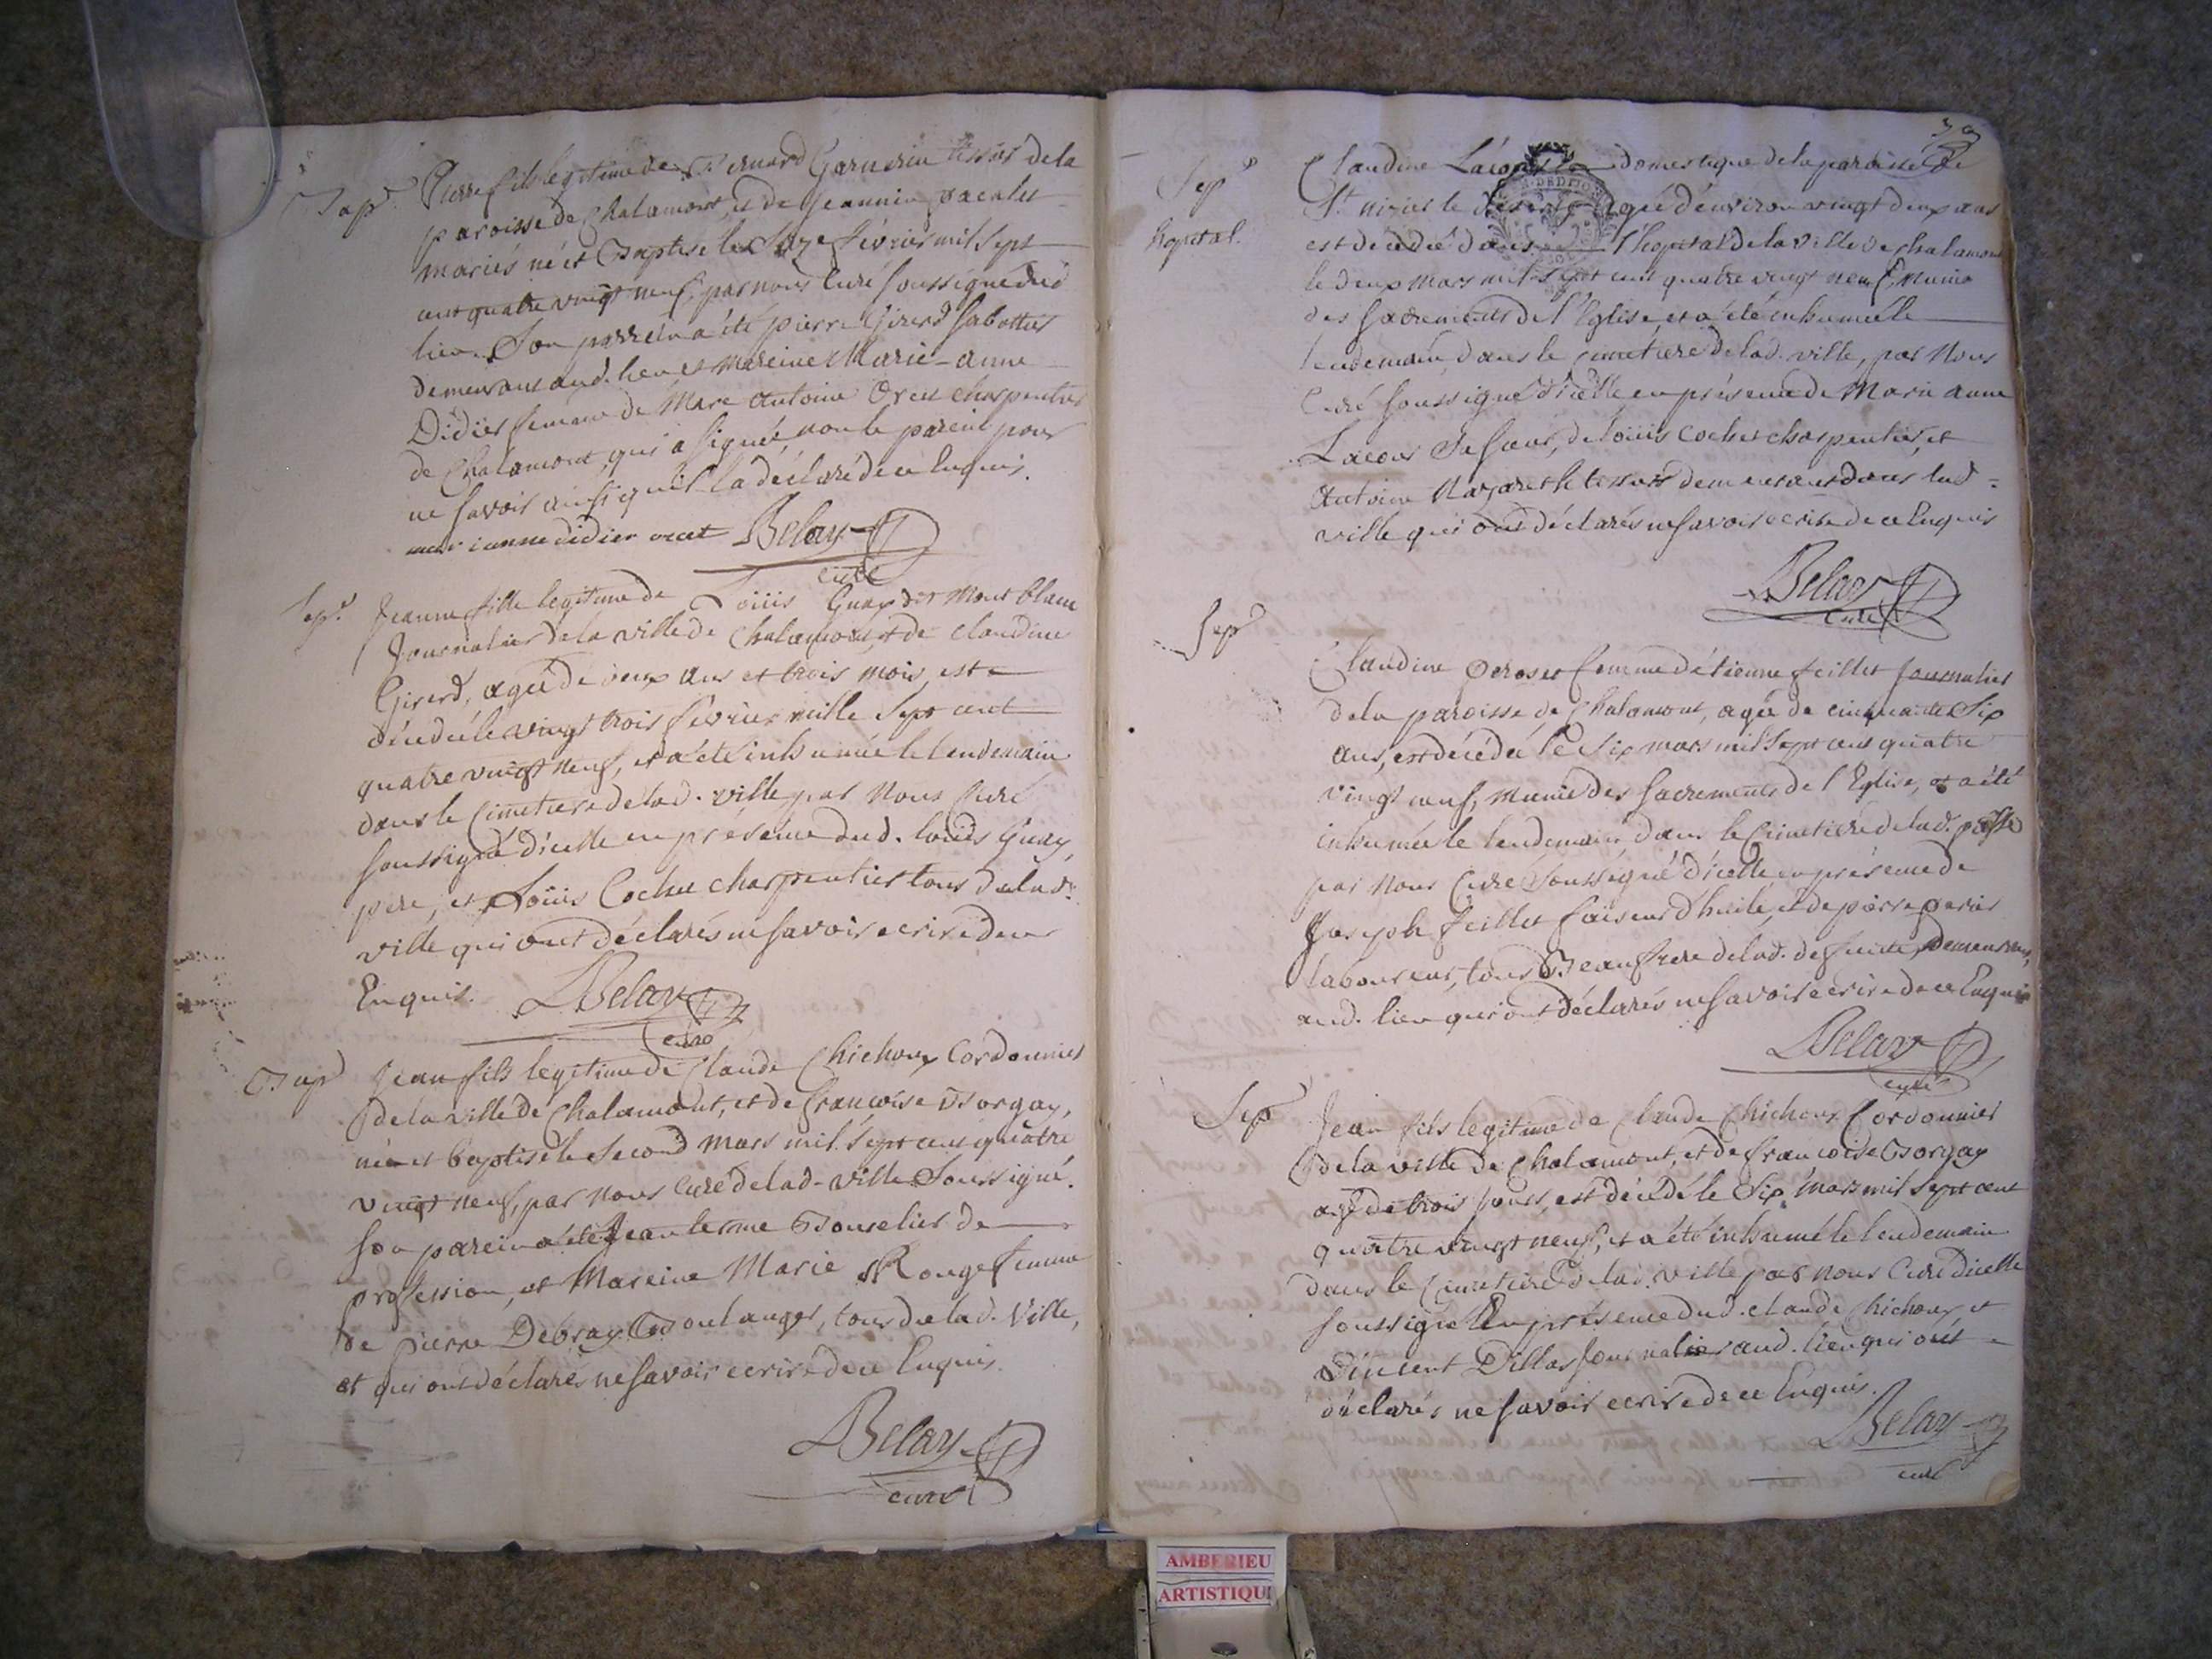 Bapᵉ
Pierre fils legitime de Bernard Garnerin tissier de la
paroisse de Chalamont, et de Jeannin pacalet
mariés né et Baptisé le Seize février mil sept
cent quatre vingt neuf, par nous Curé soussigné dud
lieu. Son parrein a été pierre Girerd Sabottier
demeurant aud. lieu et mareine Marie-anne
Didier femme de Marc Antoine Oreit charpentier
de Chalamont, qui a signée, non le parein pour
ne savoir ainsi qu'il l'a déclaré de ce Enquis.
marianne didier Belay
curé
Sepᵉ
Jeanne fille legitime de Loüis Guay dit Mont blanc
Journalier de la ville de Chalamont, et de Claudine
Girerd, agée de deux ans et trois mois, est
décédée le vingt trois février mille Sept cent
quatre vingt neuf, et a été inhumée le lendemain
dans le Cimetiere de lad. ville par Nous Curé
soussigné d'icelle en présence dud. Loüis Guay
pere, et Loüis Cochet charpentier tous de lad.
ville qui ont déclarés ne savoir ecrire de ce
Enquis. Belay
curé
Bapᵉ
Jean fils legitime de Claude Chichoux Cordonnier
de la ville de Chalamont, et de francoise Borgay,
né et baptisé le Second Mars mil Sept cent quatre
vingt neuf, par nous Curé de lad. ville Soussigné.
Son parein a été Jean lerme Bourelier de
profession, et Mareine Marie Rouge femme
de pierre Debray Boulanger, tous de lad. Ville,
et qui ont déclarés ne savoir ecrire de ce Enquis.
Belay
curé
39
Sepᵉ
hopital.
Claudine Lacour domestique de la paroisse de
St. nizier le désert agée d'environ vingt deux ans
est decedée dans l'hopital de la ville de Chalamont
le deux Mars mil Sept cent quatre vingt neuf, Munie
des Sacrements de l'Eglise, et a été inhumée le
lendemain dans le cimetiere de lad. ville, par Nous
Curé soussigné d'icelle en présence de Marie anne
Lacour Sa Sœur, de loüis Cochet charpentier, et
Antoine Nazareth tissier demeurant dans lad.
ville qui ont déclarés ne savoir ecrire de ce Enquis
Belay
curé
Sepᵉ
Claudine peroset femme d'étienne feillet Journalier
de la paroisse de Chalamont, agée de cinquante Six
ans, est décédée le Six mars mil Sept cent quatre
vingt neuf, Munie des Sacrements de l'Eglise, et a été
inhumée le lendemain dans le Cimetiere de lad. pᵃˢˢᵉ
par Nous Curé Soussigné d'icelle en présence de
Joseph feillet faiseur d'huile, et de pierre perier
laboureur, tous Beaufrere de lad. defuncte, demeurans
aud. lieu qui ont déclarés ne savoir ecrire de ce Enquis
Belay
curé
Sepᵉ
Jean fils legitime de Claude Chichoux Cordonnier
de la ville de Chalamont, et de francoise Borgay
agé de trois jours, est décédé le Six Mars mil Sept cent
quatre vingt neuf, et a été inhumé le lendemain
dans le Cimetiere de lad. ville par nous Curé d'icelle
soussigné En présence dud. claude Chichoux et
Vincent Dillas Journalier aud. lieu qui ont
déclarés ne savoir ecrire de ce Enquis.
Belay
curé
AMBERIEU
ARTISTIQU